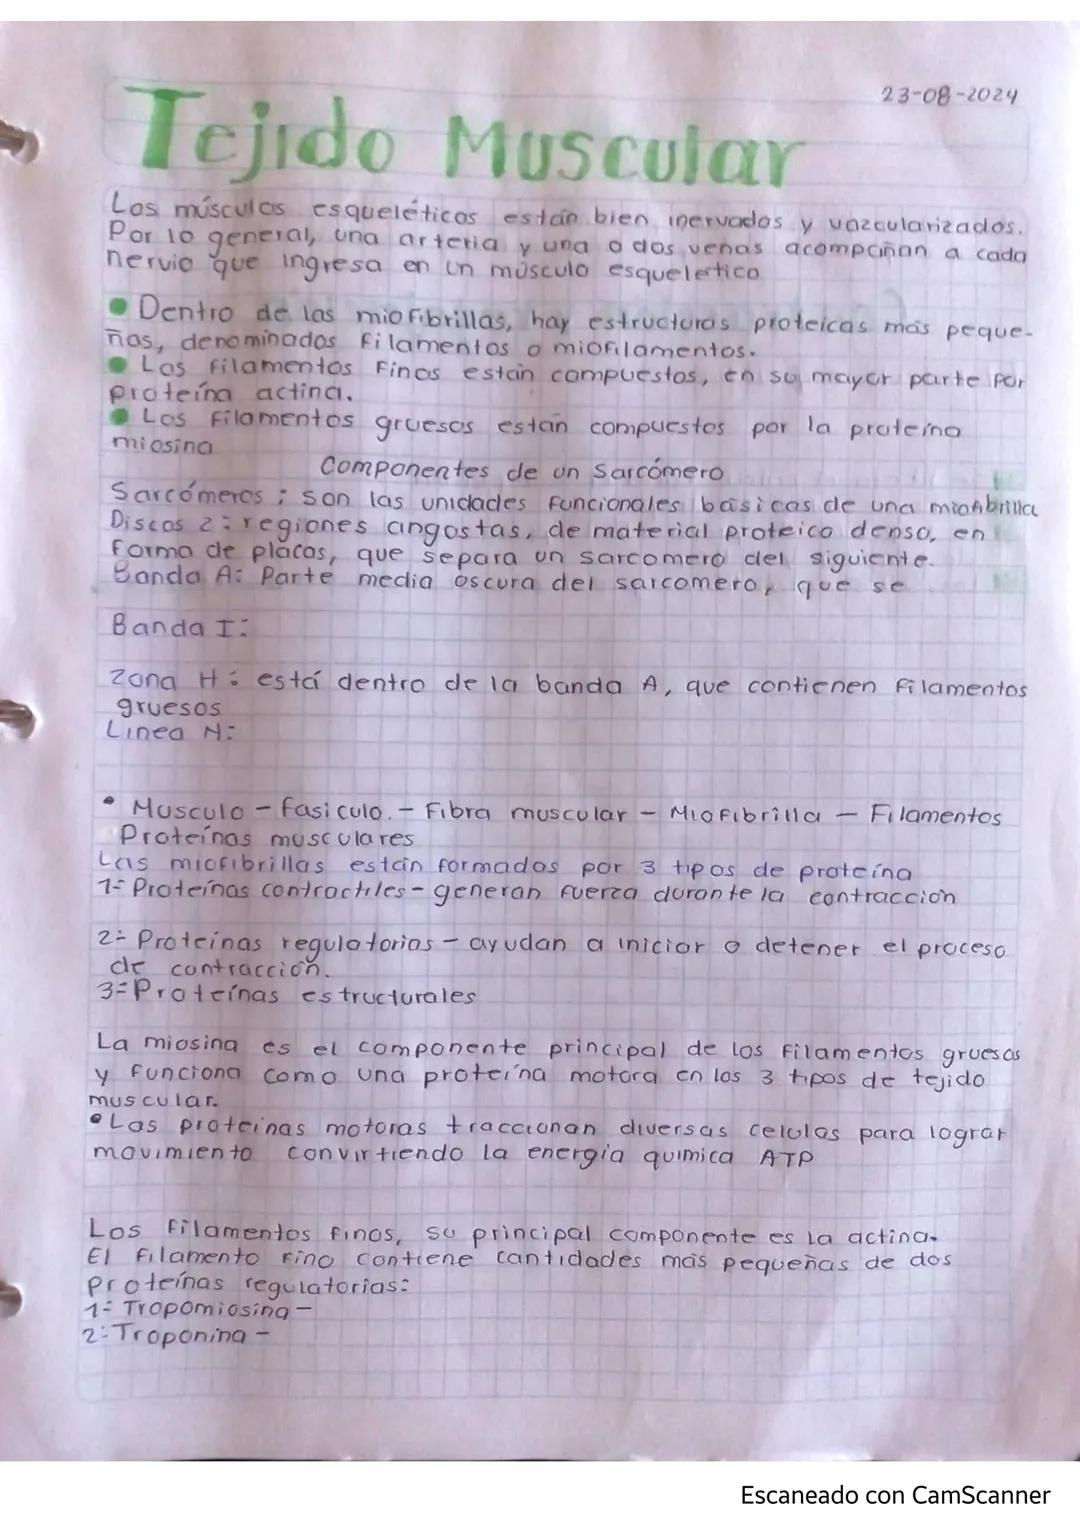 23-08-2024
Tejido Muscular
Los músculos esqueléticos están bien inervados y vazcularizados.
Por lo general, una arteria y una o dos venas acompañan a cada
nervio que ingresa en un músculo esqueletico
Dentro de las miofibrillas, hay estructuras proteicas más peque-
ñas, denominados filamentos o miofilamentos.
Los filamentos finos están compuestos, en su mayor parte por
proteína actina.
Los filamentos gruesos están compuestos por la proteína
miosina
Componentes de un Sarcómero
Sarcómeros: son las unidades funcionales básicas de una miofibrilla
Discos Z: regiones angostas, de material proteico denso, en
forma de placas, que separa un sarcomero del siguiente.
Banda A: Parte media oscura del sarcomero, que se
Banda I:
Zona H: está dentro de la banda A, que contienen filamentos
gruesos
Linea M:
• Musculo - fasiculo. - Fibra muscular - Miofibrilla - Filamentos
Proteínas musculares
Las miofibrillas están formados por 3 tipos de proteína
1= Proteínas contractiles - generan fuerza durante la contracción
2= Proteínas regulatorias - ayudan a iniciar o detener el proceso
de contracción.
3= Proteínas estructurales
La miosina es el componente principal de los filamentos gruesos
y funciona como una proteína motora en los 3 tipos de tejido
muscular.
• Las proteinas motoras traccionan diversas celulas para lograr
movimiento convirtiendo la energía quimica ATP
Los filamentos finos, su principal componente es la actina.
El filamento fino contiene cantidades más pequeñas de dos
proteínas regulatorias:
1= Tropomiosina -
2= Troponina -
Escaneado con CamScanner